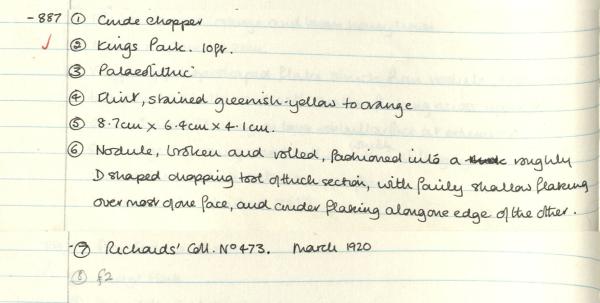 -887 ① Crude chopper
② Kings Park. 10pr.
③ Palaeolithic
④ Flint, stained greenish-yellow to orange
⑤ 8.7cm x 6.4cm x 4.1cm.
⑥ Nodule, broken and rolled, fashioned into a roughly
D shaped chopping tool of thick section, with fairly shallow flaking
over most of one face, and cruder flaking along one edge of the other.
-⑦ Richards' Coll. Nº 473. March 1920
⑧ f2